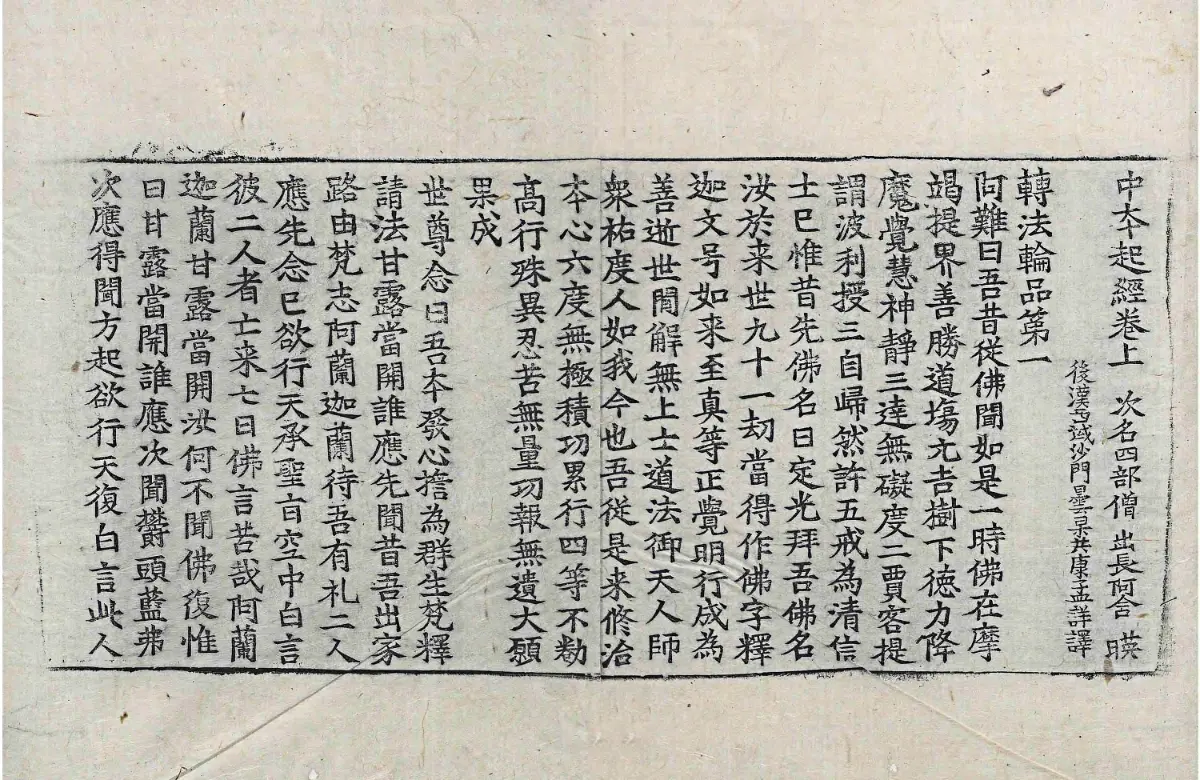 中本起經卷上 次名四部僧 出長阿含 暎
後漢西域沙門曇果共康孟詳譯
轉法輪品第一
阿難曰吾昔從佛聞如是一時佛在摩
竭提界善勝道場元吉樹下德力降
魔覺慧神靜三達無礙度二賈客提
謂波利授三自歸然許五戒為清信
士已惟昔先佛名曰定光拜吾佛名
汝於来世九十一劫當得作佛字釋
迦文号如来至真等正覺明行成為
善逝世閒解無上士道法御天人師
衆祐度人如我今也吾從是来修治
本心六度無極積功累行四等不勌
高行殊異忍苦無量功報無遺大願
果成
世尊念曰吾本發心擔為群生梵釋
請法甘露當開誰應先聞昔吾出家
路由梵志阿蘭迦蘭待吾有礼二人
應先念已欲行天承聖旨空中白言
彼二人者士来七日佛言苦哉阿蘭
迦蘭甘露當開汝何不聞佛復惟
曰甘露當開誰應次聞欝頭藍弗
次應得聞方起欲行天復白言此人